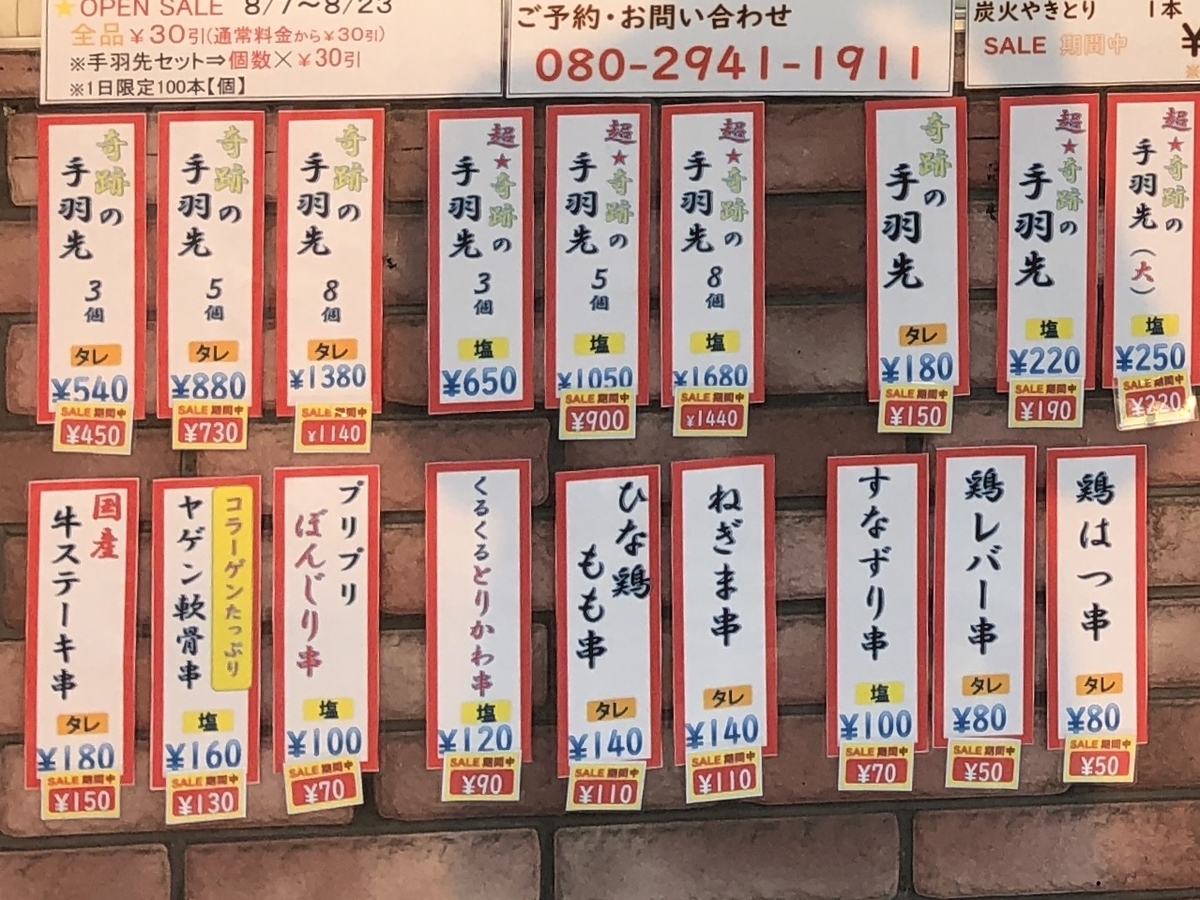 ★OPEN SALE 8/7～8/23
全品￥30引(通常料金から￥30引)
※手羽先セット⇒個数×￥30引
※1日限定100本【個】
ご予約・お問い合わせ
080-2941-1911
炭火やきとり 1本
SALE 期間中 ¥
奇跡の
手羽先
3個
タレ
¥540
SALE 期間中
¥450
奇跡の
手羽先
5個
タレ
¥880
SALE 期間中
¥730
奇跡の
手羽先
8個
タレ
¥1380
SALE 期間中
¥1140
超★奇跡の
手羽先
3個
塩
¥650
超★奇跡の
手羽先
5個
塩
¥1050
SALE 期間中
¥900
超★奇跡の
手羽先
8個
塩
¥1680
SALE 期間中
¥1440
奇跡の
手羽先
タレ
¥180
SALE 期間中
¥150
超★奇跡の
手羽先
塩
¥220
SALE 期間中
¥190
超★奇跡の
手羽先(大)
塩
¥250
SALE 期間中
¥220
国産
牛ステーキ串
タレ
¥180
SALE 期間中
¥150
コラーゲンたっぷり
ヤゲン軟骨串
塩
¥160
SALE 期間中
¥130
プリプリ
ぼんじり串
塩
¥100
SALE 期間中
¥70
くるくるとりかわ串
塩
¥120
SALE 期間中
¥90
ひな鶏
もも串
タレ
¥140
SALE 期間中
¥110
ねぎま串
タレ
¥140
SALE 期間中
¥110
すなずり串
塩
¥100
SALE 期間中
¥70
鶏レバー串
タレ
¥80
SALE 期間中
¥50
鶏はつ串
タレ
¥80
SALE 期間中
¥50